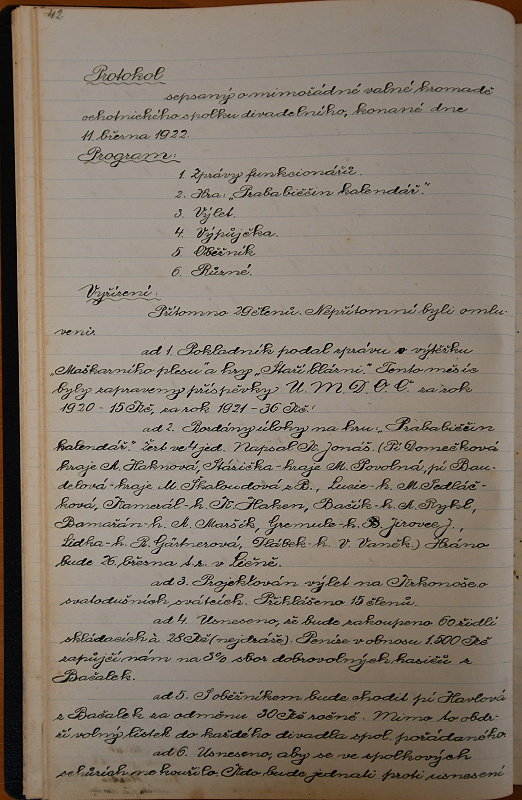 42
Protokol
sepsaný o mimořádné valné hromadě
ochotnického spolku divadelního, konané dne
11. března 1922.
Program:
1. Zprávy funkcionářů.
2. Hra: „Prababiččin kalendář."
3. Výlet.
4. Výpůjčka.
5. Oběžník
6. Různé.
Vyřízení:
Přítomno 29 členů. Nepřítomní byli omlu-
veni.
ad 1. Pokladník podal zprávu o výtěžku
„Maškarního plesu" a hry „Staří blázni." Tento měsíc
byly zapraveny příspěvky Ú. M. D. O. Č. za rok
1920 - 15 Kč, za rok 1921 - 36 Kč.
ad 2. Rozdány úlohy na hru „Prababiččin
kalendář." Žert ve 4 jed. Napsal K. Jonáš. (Pí Domečková
hraje A. Haknová, Stázička - hraje M. Povolná, pí Bau-
delová - hraje M. Škaloudová z B., Lucie - h. M. Sedláč-
ková, Kamerál - h. K. Haken, Bačík - h. A. Rykl,
Bamazán - h. A. Maršík, Gremule - h. B. Jirovec J.,
Lidka - h. R. Gärtnerová, Hlábek - h. V. Vaněk.) Hráno
bude 26. března t. r. v Ličně.
ad 3. Projektován výlet na Krkonoše o
svatodušních svátcích. Přihlášeno 15 členů.
ad 4. Usneseno, že bude zakoupeno 60 židlí
skládacích à 28 Kč (nejdráže). Peníze v obnosu 1.500 Kč
zapůjčí nám na 3% sbor dobrovolných hasičů z
Bačalek.
ad 5. S oběžníkem bude choditi pí Havlová
z Bačalek za odměnu 30 Kč ročně. Mimo to obdr-
ží volný lístek do každého divadla spol. pořádaného.
ad 6. Usneseno, aby se ve spolkových
schůzích nekouřilo. Kdo bude jednati proti usnesení